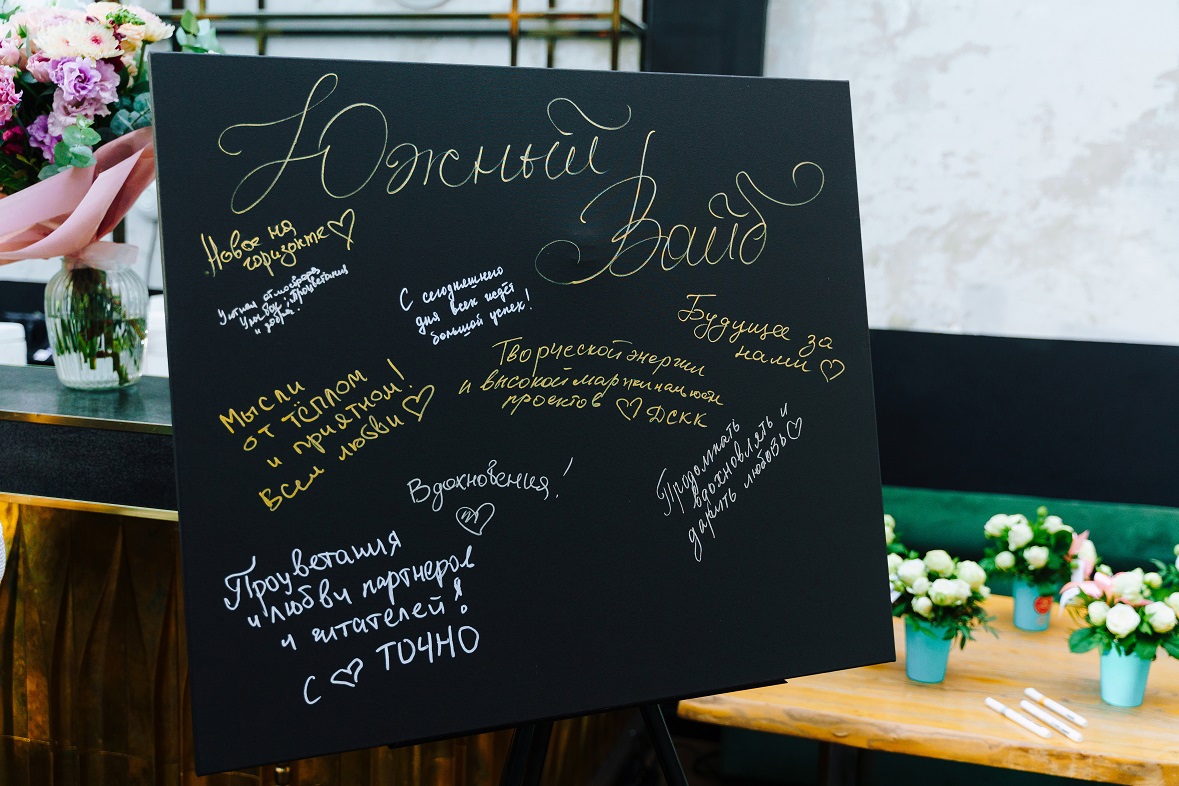 Южный
Вайб
Новое на
горизонте
Уютная атмосфера
процветания
и добра!
С сегодняшнего
дня всех ждёт
большой успех!
Будущее за
нами
Творческой энергии
и высокой маржинальности
проектов ДСКК
Мысли
от тёплом
и приятном!
Всем любви
Вдохновения!
m
Продолжать
вдохновлять и
дарить любовь
Процветания
и любви партнеров
и читателей!
С ТОЧНО